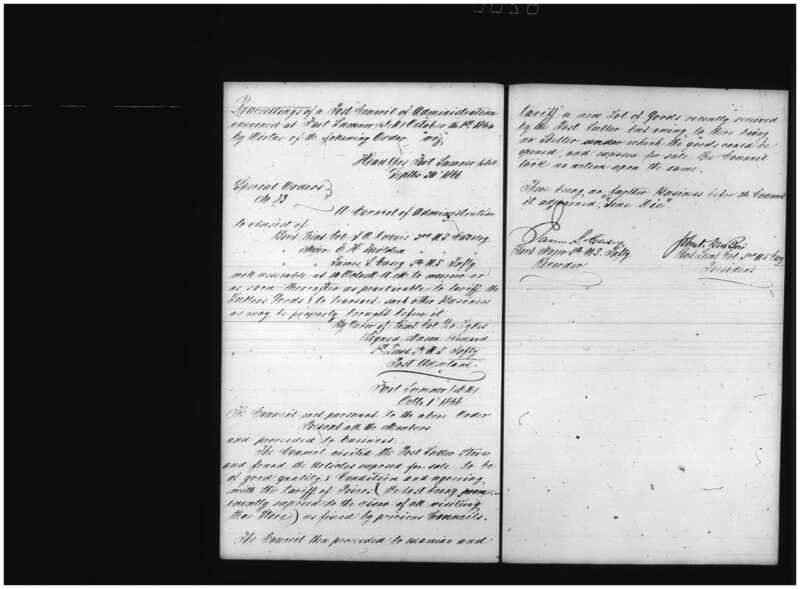 Proceedings of a Post Council of Administration
convened at Fort Sumner N.M. October the 1st 1866
by virtue of the following Order viz
Head Qrs Fort Sumner N.M.
Septbr 30" 1866
Special Orders
No. 93
A Council of Administration
to consist of
Brvt. Lieut. Col. 3rd U.S. Cavalry
Major
" James L. Casey 5th U.S. Infty
will assemble at 10 O'clock A.M. to morrow or
as soon thereafter as practicable to tariff the
Sutlers Goods & to transact such other Business
as may be properly brought before it
By Order of Lieut Col Geo Sykes
Signed
1st Lieut 5th U.S. Infty
Post Adjutant
Fort Sumner N.M.
Octbr 1st 1866
The Council met pursuant to the above Order
Present all the Members
and proceeded to business.
The Council visited the Post Sutler Store
and found the Articles exposed for sale to be
of good quality & Condition and agreeing
with the tariff of Prices (the last being prom-
inently exposed to the view of all visiting
the Store) as fixed by previous Councils.
The Council then proceeded to examine and
tariff a new Lot of Goods recently received
by the Post Sutler but owing to there being
no Shelter under which the goods could be
opened, and exposed for sale the Council
took no action upon the same.
There being no further Business before the Council
it adjourned, "Sine Die"
James L. Casey
Brvt Major 5th U.S. Infty
Recorder
Brvt Lieut Col 3rd U.S. Cavy
President